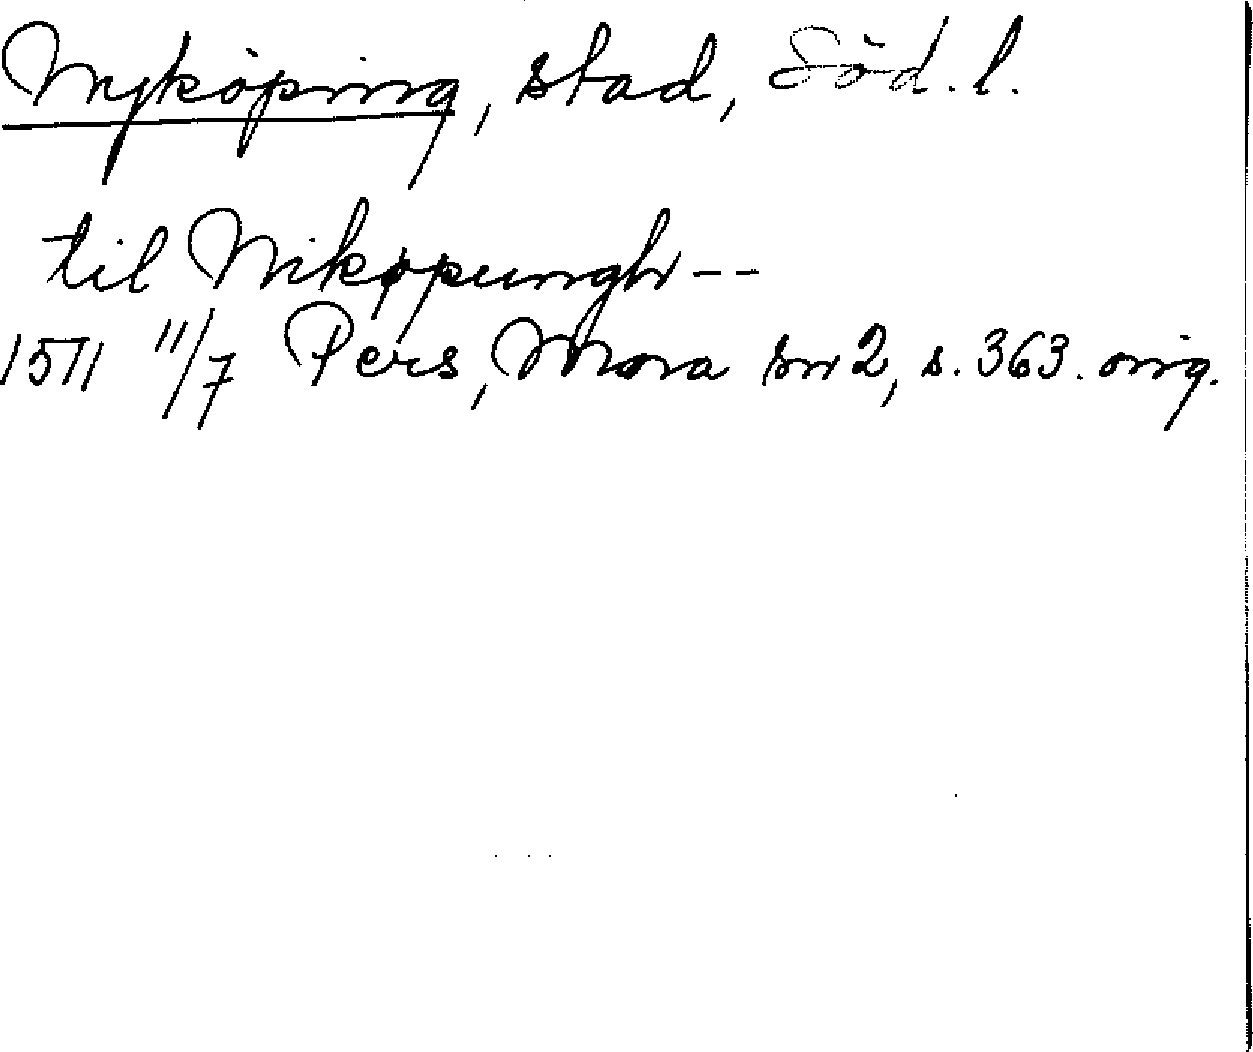 Nyköping, stad, Söd. l.
til Nikøpungh --
1571 11/7 Pers, Mora sn 2, s. 363. orig.